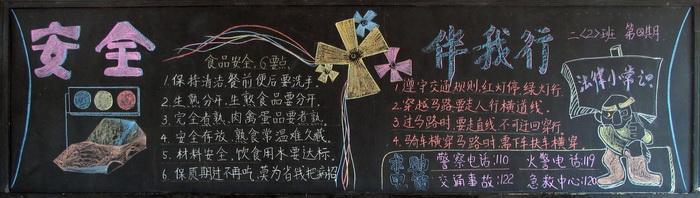 安全
伴我行
二〈2〉班 第②期
食品安全，6要点
1.保持清洁，餐前便后要洗手。
2.生熟分开，生熟食品要分开。
3.完全煮熟，肉禽蛋品要煮熟。
4.安全存放，熟食常温难久藏。
5.材料安全，饮食用水要达标。
6.保质期过不再吃，莫为省钱把病招
1.遵守交通规则，红灯停，绿灯行。
2.穿越马路要走人行横道线。
3.过马路时，要走直线，不可迂回穿行。
4.骑车横穿马路时，需下车扶车横穿
法律小常识
求助电话
警察电话:110 火警电话:119
交通事故:122 急救中心:120